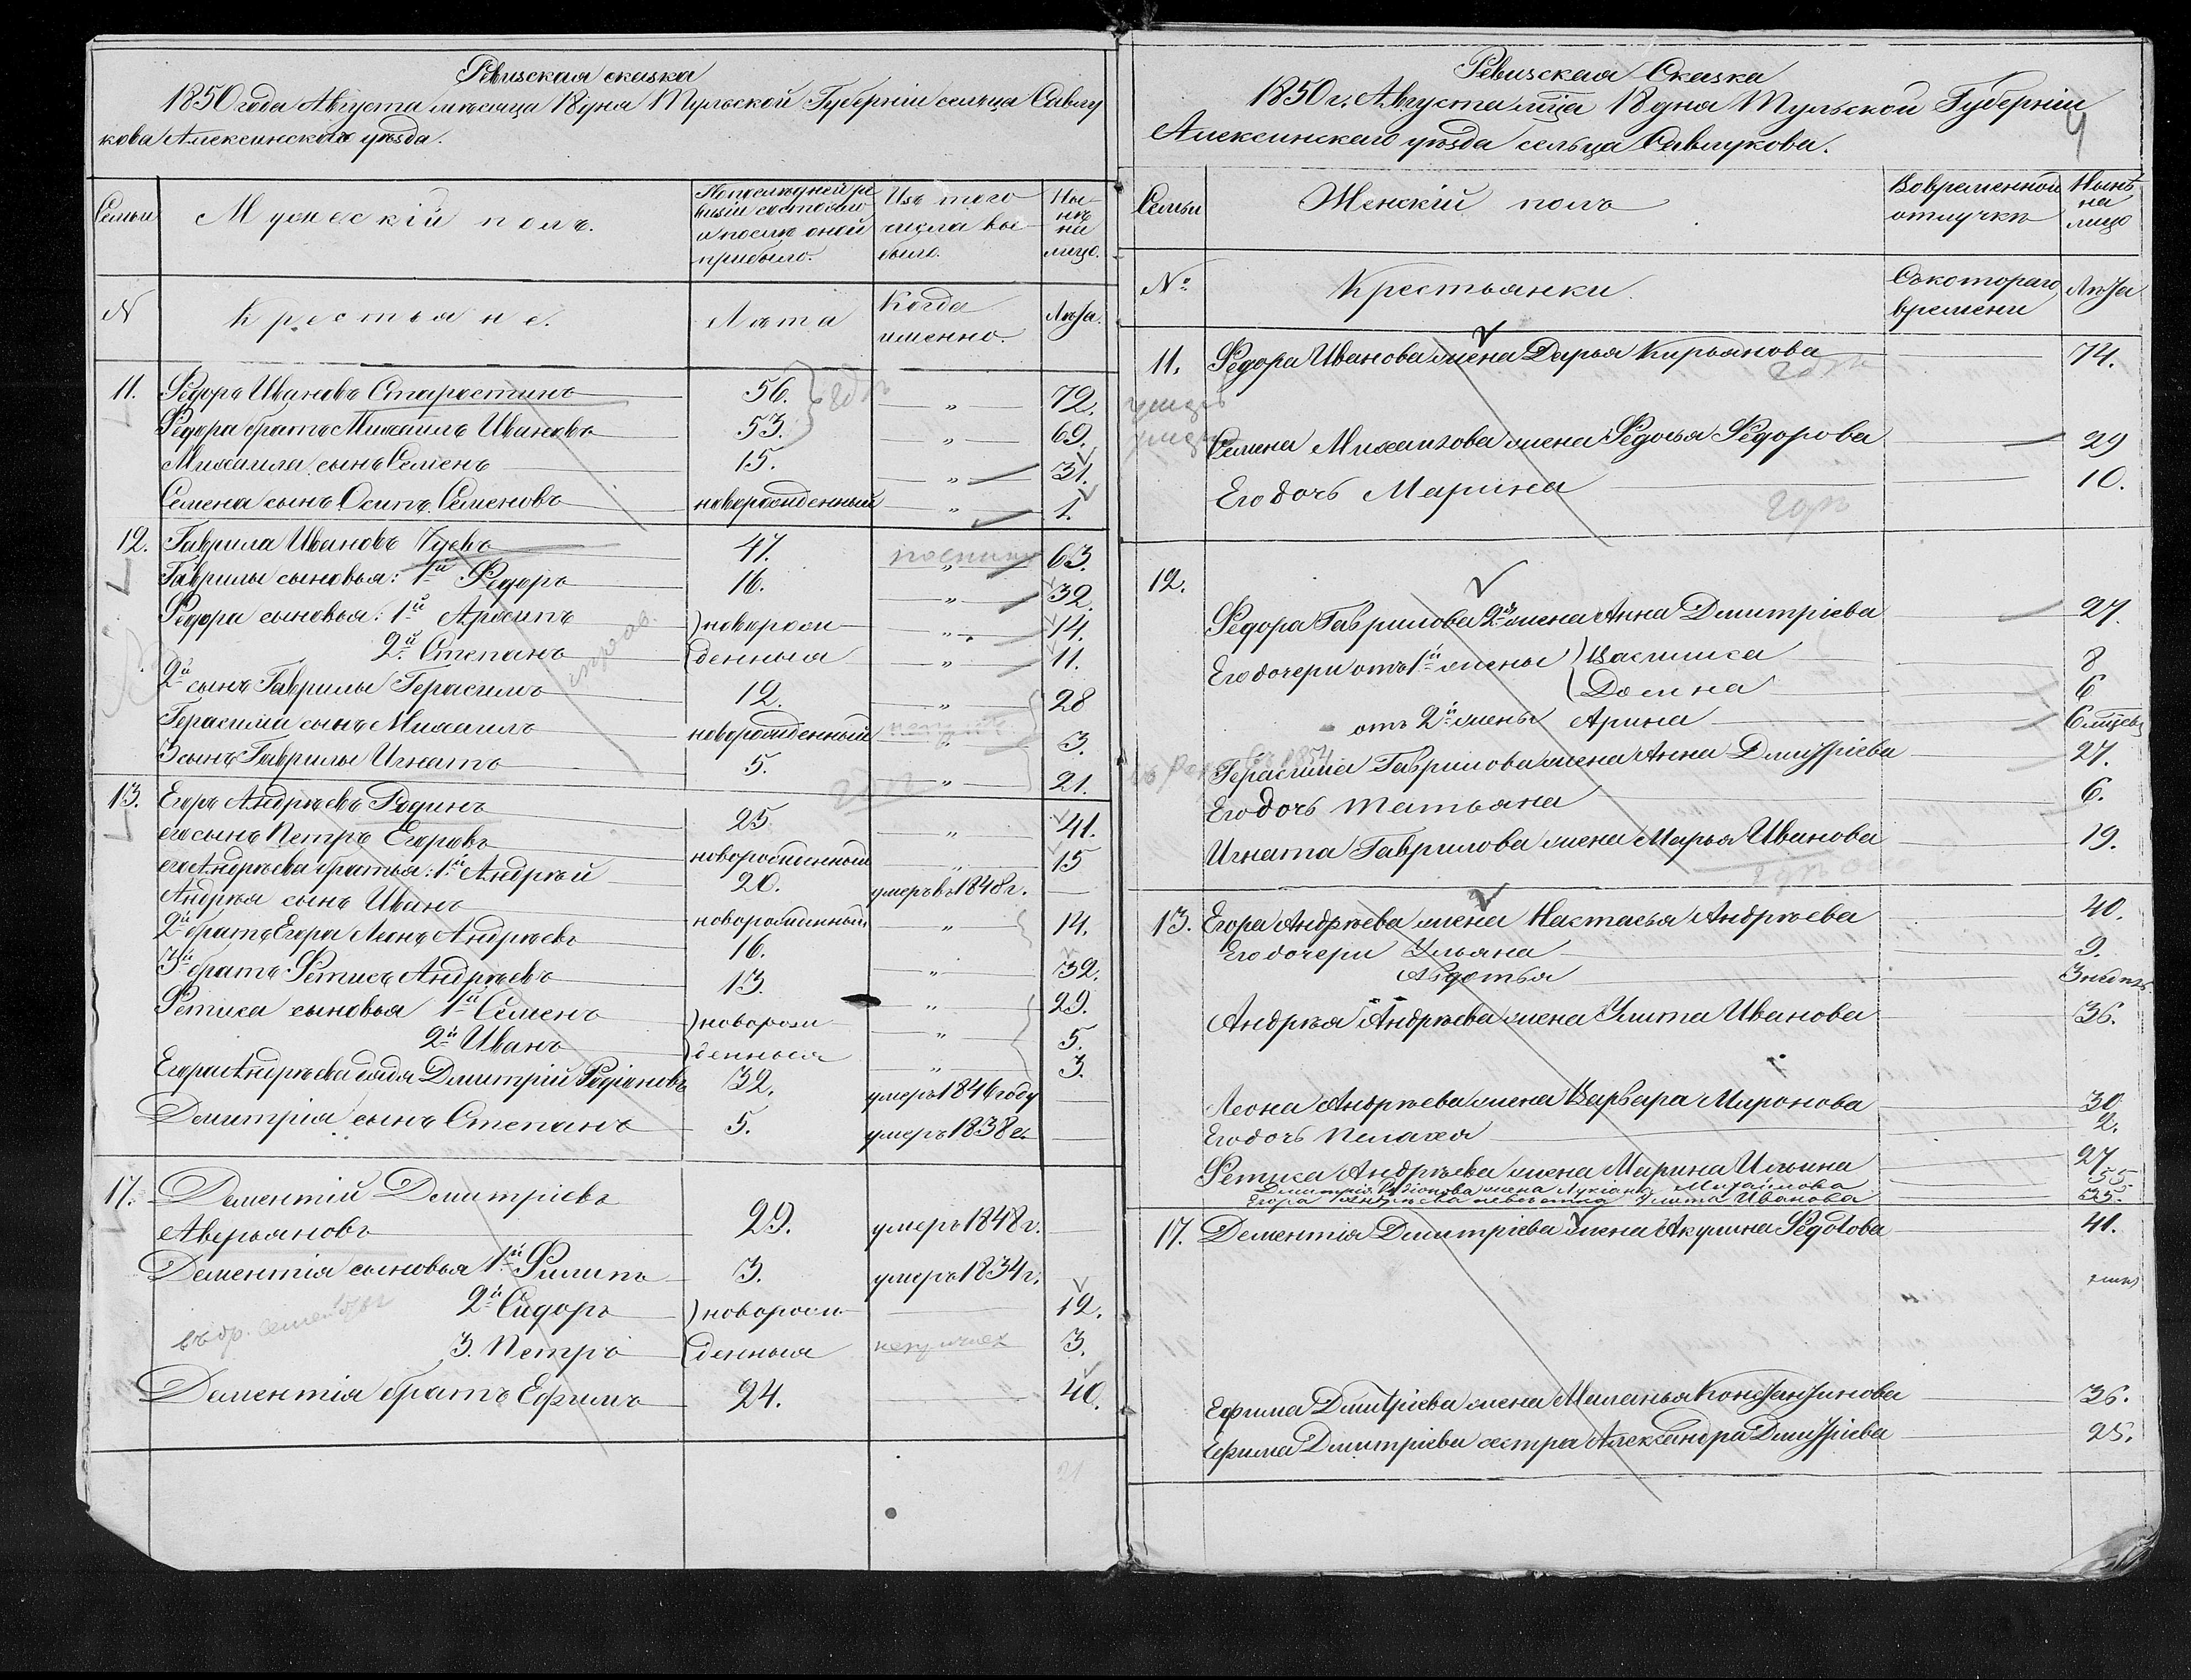 Ревизская сказка
1850 года Августа месяца 18 дня Тульской Губерніи сельца Савлу
кова Алексинскаго уѣзда.
Семьи
Мужескій полъ.
По последней ре
визіи состояло
и после оной
прибыло.
Изъ того
числа вы
было.
Ны-
нѣ
на
лицо.
N
Крестьяне.
Лѣта
Когда
именно.
Лѣта.
11. Ѳедоръ Ивановъ Старостинъ 56. „ 72.
Ѳедора братъ Михаилъ Ивановъ 53. „ 69.
Михаила сынъ Семенъ 15. „ 31.
Семена сынъ Осипъ Семеновъ новорожденный „ 1.
12. Гаврила Ивановъ 47. „ 63.
Гаврилы сыновья: 1й Ѳедоръ 16. „ 32.
Ѳедора сыновья: 1й новорож „ 14.
2й Степанъ денныя „ 11.
2й сынъ Гаврилы Герасимъ 12. „ 28
Герасима сынъ Михаилъ новорожденный „ 3.
3 сынъ Гаврилы Игнатъ 5. „ 21.
13. Егоръ Андреевъ Родинъ 25 „ 41.
его сынъ Петръ Егоровъ новорожденный „ 15
его Андреева братья: 1й Андрей 20. умеръ въ 1848 г.
Андрея сынъ Иванъ новорожденный „ 14.
2й братъ Егора Леонъ Андреевъ 16. „ 32.
3й братъ Ѳетисъ Андреевъ 13. „ 29.
Ѳетиса сыновья 1й Семенъ новорож „ 5.
2й Иванъ денныя „ 3.
Егора Андреева дядя Дмитрій Родіоновъ 32. умеръ 1846 году
Дмитрія сынъ Степанъ 5. умеръ 1838 г.
17. Дементій Дмитріевъ
Аверьяновъ 29. умеръ 1848 г.
Дементія сыновья 1й Филипъ 3. умеръ 1834 г.
2й Сидоръ новорож 12.
3. Петръ денныя 3.
Дементія братъ Ефимъ 24. 40.
21
Ревизская Сказка
1850 г. Августа мца 18 дня Тульской Губерніи
4
Алексинскаго уѣзда сельца Савлукова.
Семьи
Женскій полъ
Во временной
отлучкѣ
Нынѣ
на
лицо
№
Крестьянки.
Съ котораго
времени
Лѣта
11. Ѳедора Иванова жена Дарья Кирьянова 74.
Семена Михаилова жена Ѳедосья Ѳедорова 29
Его дочь Марина 10.
12.
Ѳедора Гаврилова 2я жена Анна Дмитріева 27.
Его дочери отъ 1й жены Василиса 8
Домна 6
отъ 2й жены Арина 6 мцев
Герасима Гаврилова жена Анна Дмитріева 27.
Его дочь Татьяна 6.
Игната Гаврилова жена Марья Иванова 19.
13. Егора Андреева жена Настасья Андреева 40.
Его дочери Ульяна 9.
Авдотья 3 недѣль
Андрея Андреева жена Улита Иванова 36.
Леона Андреева жена Варвара Миронова 30
Его дочь Пелагея 2.
Ѳетиса Андреева жена Марина Ильина 27
Дмитрія Родіонова жена Михайлова 55.
Егора Андреева невестка Улита Иванова 35.
17. Дементія Дмитріева жена Акулина Ѳедотова 41.
Ефима Дмитріева жена Маланья Константинова 36.
Ефима Дмитріева сестра Александра Дмитріева 25.